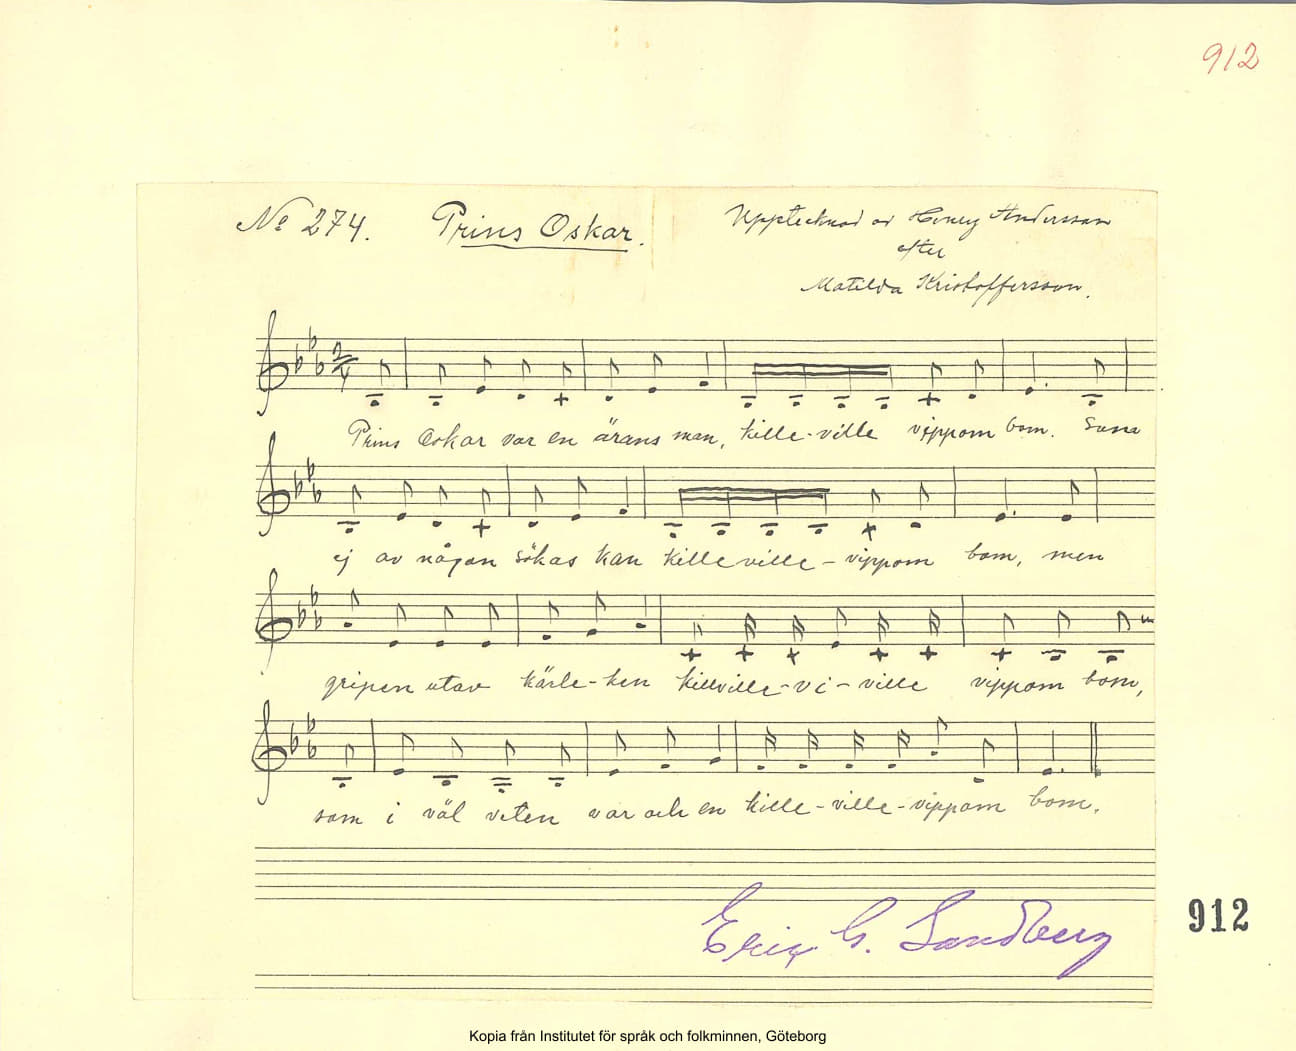 912
No 274. Prins Oskar. Upptecknad av Henry Andersson
efter
Matilda Kristoffersson.
2/4
Prins Oskar var en ärans man, kille-ville vippom bom. Som
ej av någon sökas kan kille ville - vippom bom, men
gripen utav kärle-ken killville-vi-ville vippom bom,
som i väl veten var och en kille-ville-vippom bom.
Erix G. Sandberg
912
Kopia från Institutet för språk och folkminnen, Göteborg